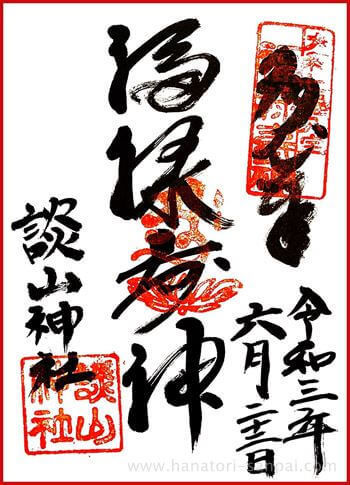 多武峯
福禄寿神
談山神社
令和三年
六月
談山神社
www.hanatori-sanpai.com